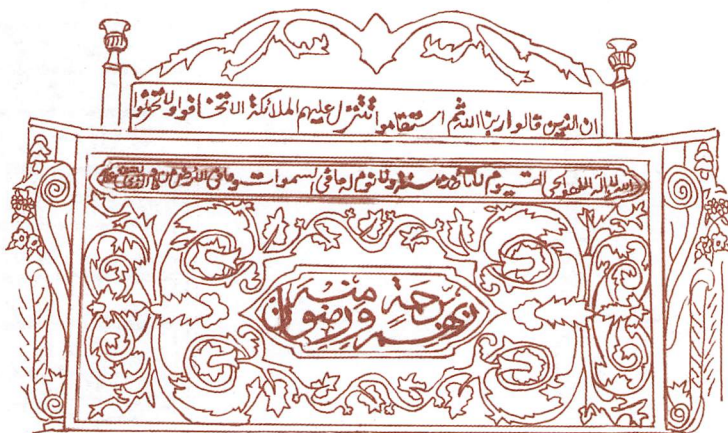 ان الذين قالوا ربنا الله ثم استقاموا تتنزل عليهم الملائكة الا تخافوا ولا تحزنوا
الله لا إله إلا هو الحي القيوم لا تأخذه سنة ولا نوم له ما في السموات وما في الأرض من ذا الذي يشفع عنده
ربهم برحمة منه ورضوان